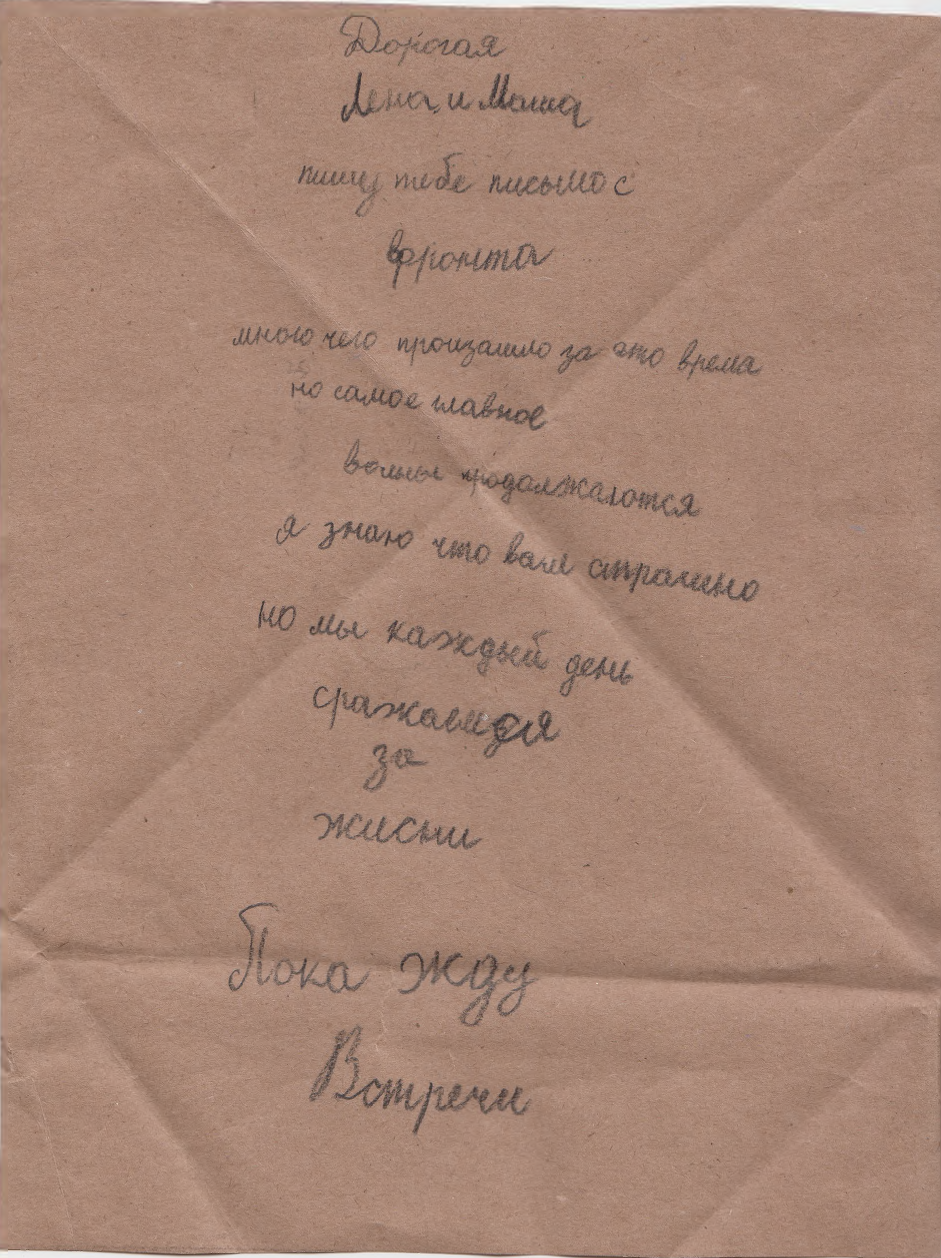 Дорогая
Лена и Маша
пишу тебе письмо с
фронта
много чего произашло за это время
но самое главное
волны продолжаются
я знаю что вам страшно
но мы каждый день
сражаемся
за
жисни
Пока жду
Встречи